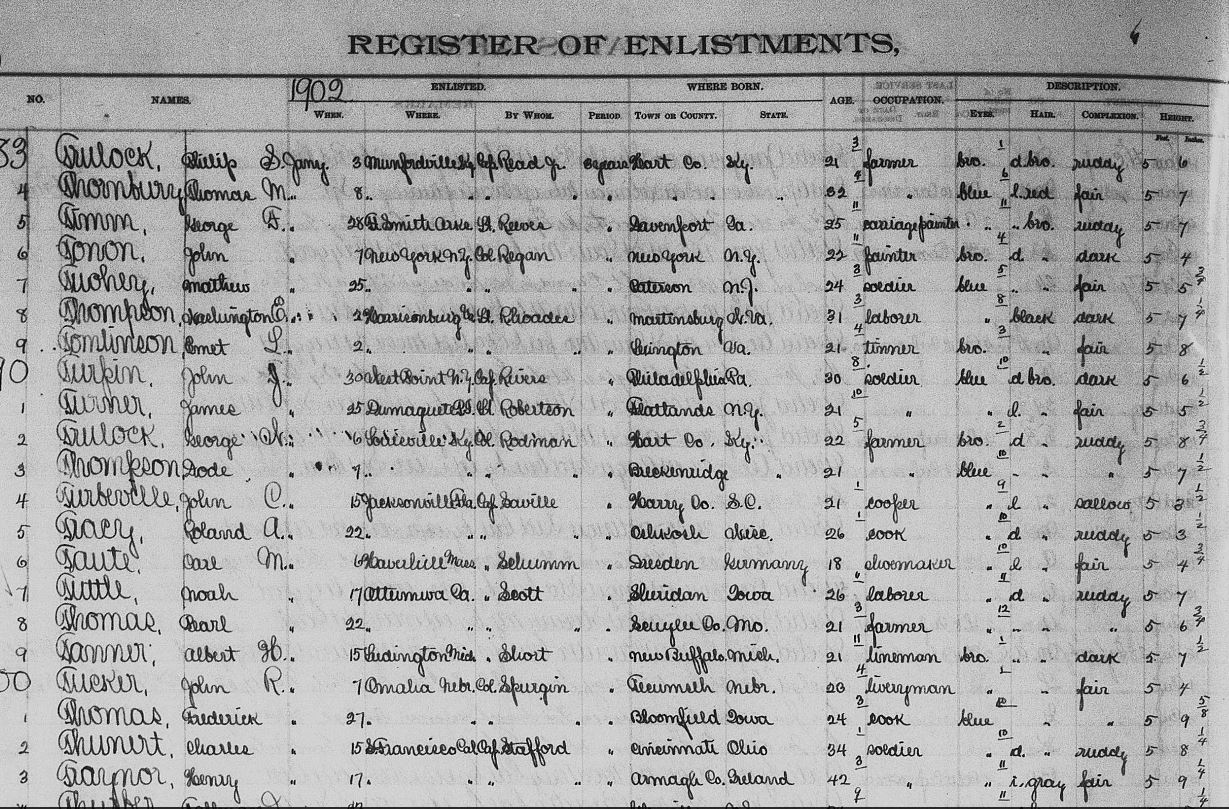 REGISTER OF ENLISTMENTS,
NO. NAMES. 1902 ENLISTED. WHERE BORN. AGE. OCCUPATION. DESCRIPTION.
WHEN. WHERE. BY WHOM. PERIOD. TOWN OR COUNTY. STATE. EYES. HAIR. COMPLEXION. HEIGHT.
Tulock, Philip S. Jany 3 Munfordville Ky. Read J. 3 years Hart Co. Ky. 21 3/12 farmer bro. d bro. ruddy 5 6
4 Thornbury, Thomas M. " 8 " " " " " " 32 " blue l. red fair 5 7
5 Timm, George F. " 28 Ft Smith Ark Lt. Reeves " Davenport Ia. 25 carriage painter " " bro. ruddy 5 7
6 Tonon, John " 7 New York N.Y. Col. Regan " New York N.Y. 22 painter bro. d. " dark 5 4
7 Tuohey, Mathew " 25 " " " " Paterson N.J. 24 soldier blue " " fair 5 5
8 Thompson, " 2 Harrisonburg Va. Lt. Rhoades " Martinsburg W.Va. 31 laborer " black dark 5 7
9 Tomlinson, Emet L. " 2 " " " " Lexington Va. 21 tinner bro. " fair 5 8
90 Turpin, John J. " 30 West Point N.Y. Rivers " Philadelphia Pa. 30 soldier blue d bro. dark 5 6
1 Turner, James " 25 Dumaguete P.I. Robertson " Flatlands N.Y. 21 " " l. " fair 5 5
2 Tulock, George W. " 16 Louisville Ky. Col. Rodman " Hart Co Ky. 22 farmer bro. d. " ruddy 5 8
3 Thompson, Dode " 7 " " " " Breckenridge " 21 " blue " " " 5 7
4 Turbeville, John C. " 15 Jacksonville Fla. Saville " Horry Co. S.C. 21 cooper " l " sallow 5
5 Tracy, Roland A. " 22 " " " " 26 cook " d " ruddy 5 3
6 Taute, Carl M. " Haverhill Mass " Schumm " Dresden Germany 18 shoemaker " l " fair 5 4
7 Tuttle, Noah " 17 Ottumwa Ia. " Scott " Sheridan Iowa 26 laborer " d. " ruddy 5 7
8 Thomas, Earl " 22 " " " " Schuyler Co. Mo. 21 farmer " " " " 5 6
9 Tanner, Albert H. " 15 Ludington Mich " Short " New Buffalo Mich. 21 lineman bro. " " dark 5 7
Tucker, John R. " 7 Omaha Nebr. Col. Spurgin " Tecumseh Nebr. 23 liveryman " " " fair 5 4
1 Thomas, Frederick " 27 " " " " Bloomfield Iowa 24 cook blue " " " 5 9
2 Thunert, Charles " 15 S Francisco Cal Stafford " Cincinnati Ohio 34 soldier " d. " ruddy 5 8
3 Traynor, Henry " 17 " " " " Armagh Co. Ireland 42 " " i. gray fair 5 9